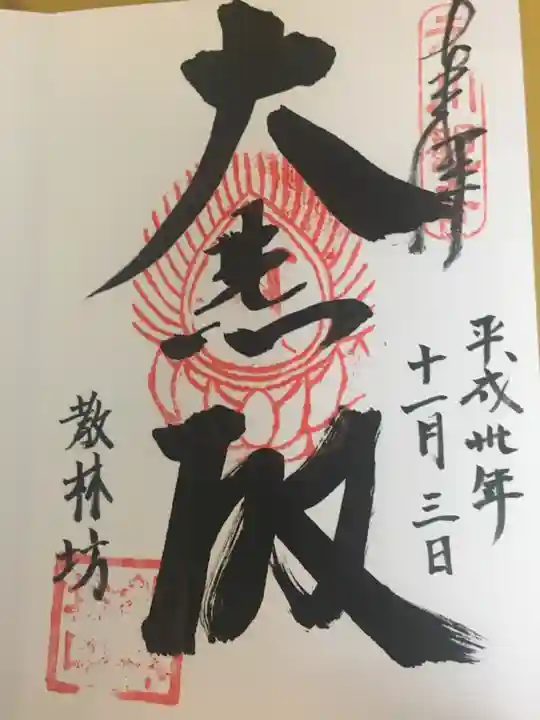 奉拝
平成卅年
十一月三日
大悲殿
教林坊